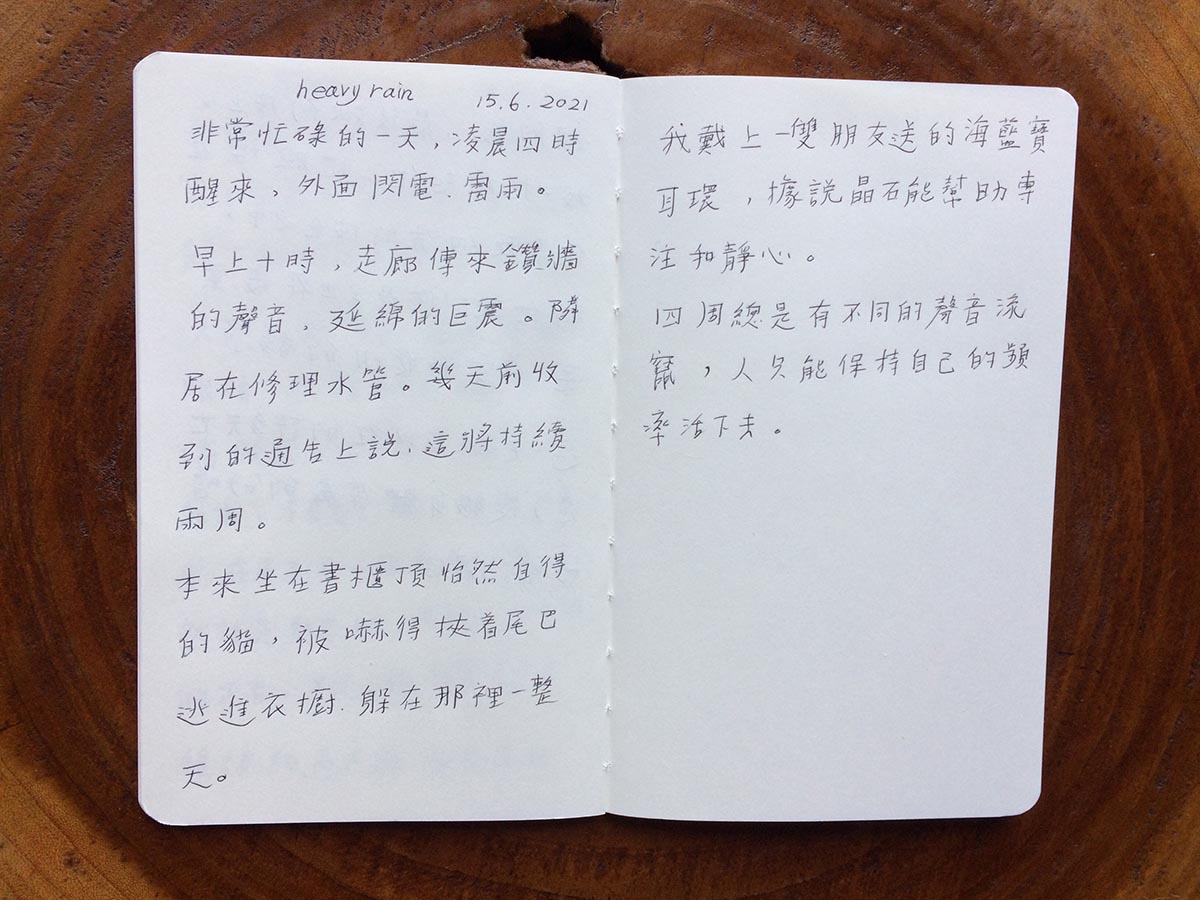 heavy rain 15.6.2021
非常忙碌的一天，凌晨四時
醒來，外面閃電、雷雨。
早上十時，走廊傳來鑽牆
的聲音，延綿的巨震。隣
居在修理水管。幾天前收
到的通告上說，這將持續
兩周。
本來坐在書櫃頂怡然自得
的貓，被嚇得挾着尾巴
逃進衣櫥，躲在那裡一整
天。
我戴上一雙朋友送的海藍寶
耳環，據說晶石能幫助專
注和靜心。
四周總是有不同的聲音流
竄，人只能保持自己的頻
率活下去。